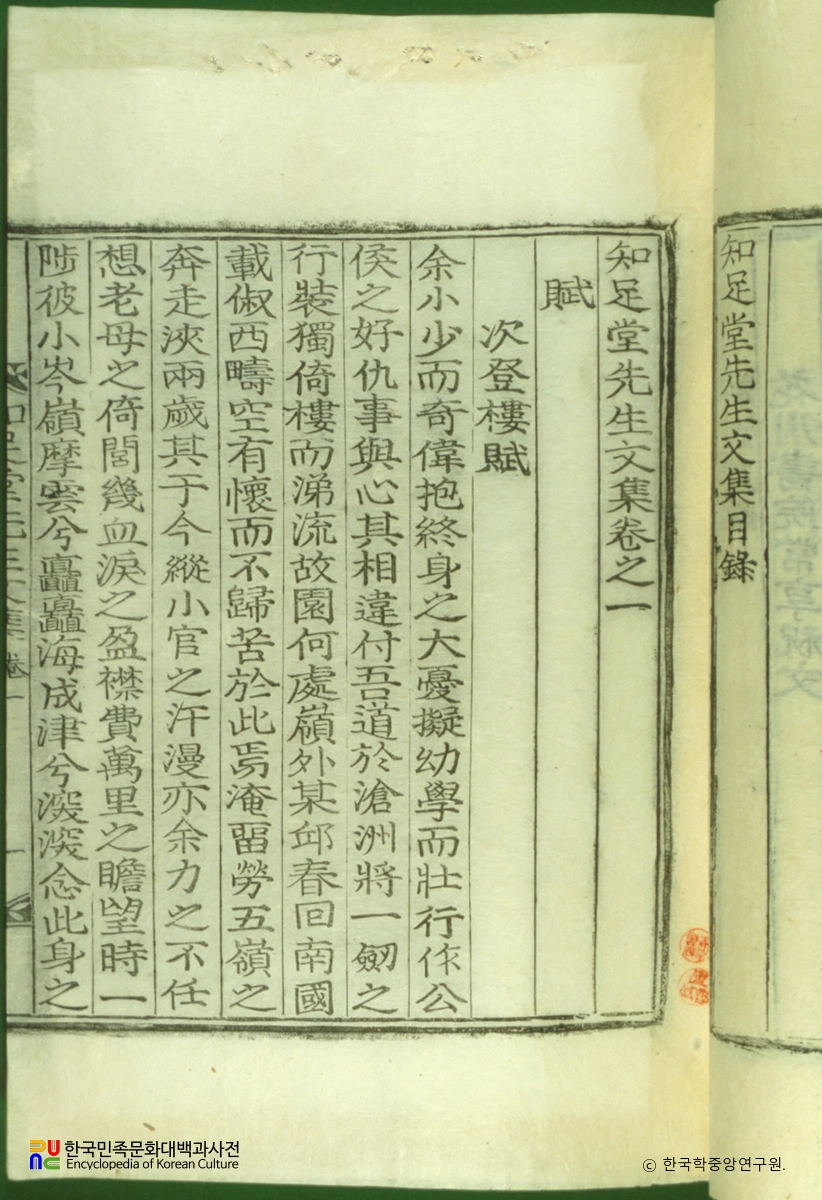 知足堂先生文集目錄
知足堂先生文集卷之一
賦
次登樓賦
余小少而奇偉抱終身之大憂擬幼學而壯行作公
侯之好仇事與心其相違付吾道於滄洲將一劒之
行裝獨倚樓而涕流故園何處嶺外某邱春回南國
載俶西疇空有懷而不歸苦於此焉淹留勞五嶺之
奔走浹兩歲其于今縱小官之汗漫亦余力之不任
想老母之倚閭幾血淚之盈襟費萬里之瞻望時一
陟彼小岑嶺摩雲兮矗矗海成津兮深深念此身之
한국민족문화대백과사전
Encyclopedia of Korean Culture
ⓒ 한국학중앙연구원.